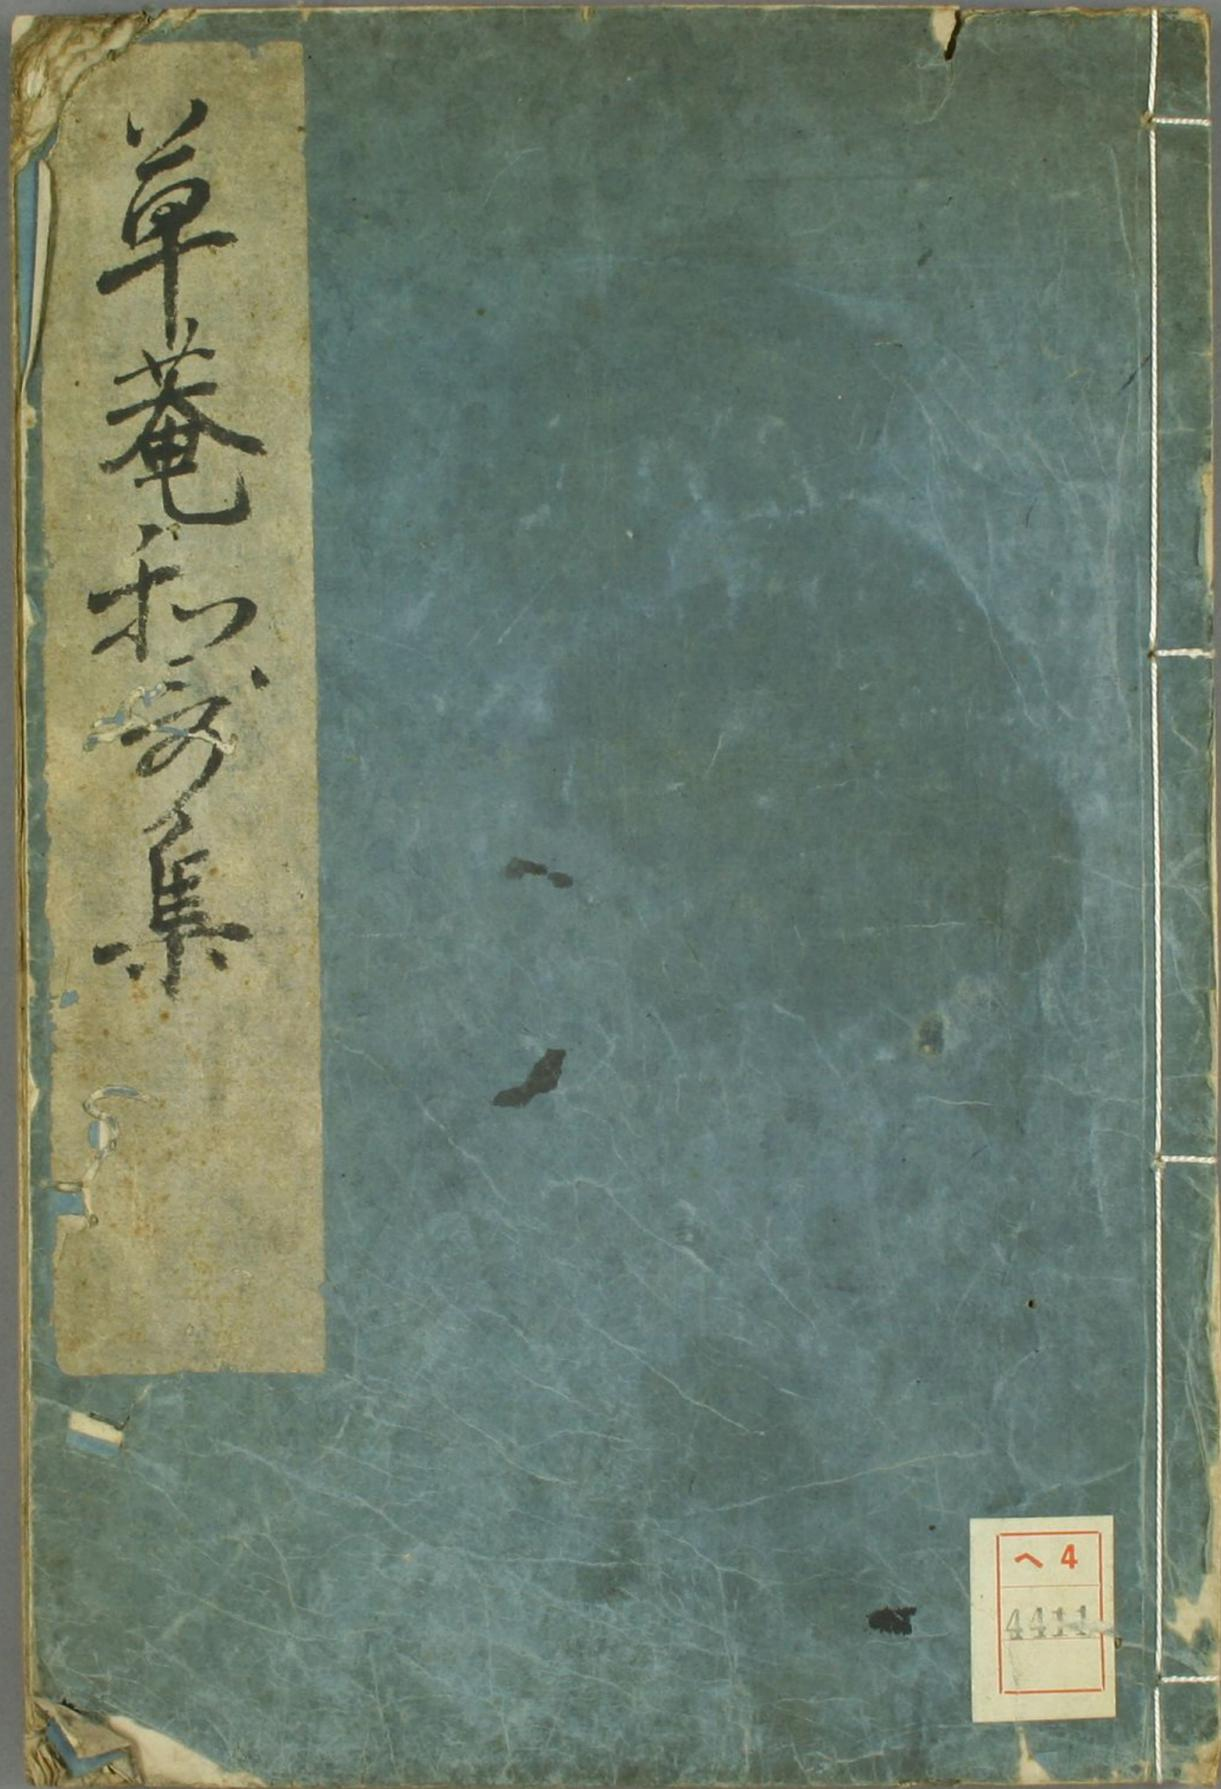 草菴和哥集
ヘ4
4411